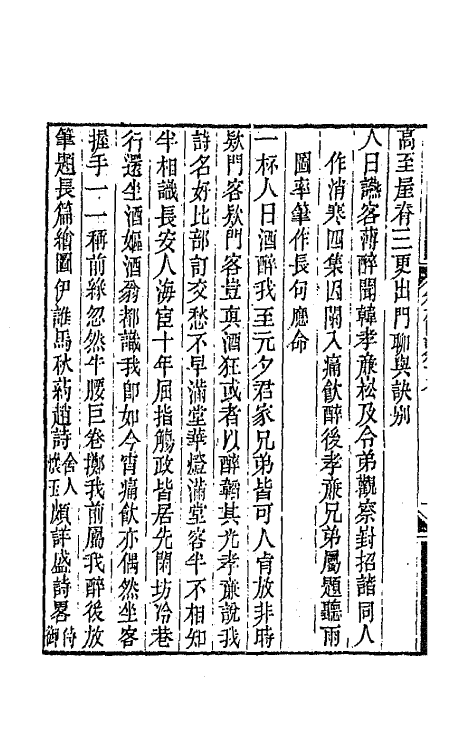 高至屋脊三更出門聊與訣别
人日讌客薄醉聞韓孝廉松及令弟觀察崶招諸同人
作消寒四集因闌入痛飲醉後孝廉兄弟屬題聽雨
圖率筆作長句應命
一杯人日酒醉我至元夕君家兄弟皆可人肯放非時
欵門客欵門客豈眞酒狂或者以醉韜其光孝廉說我
詩名好比部訂交愁不早滿堂華燈滿堂客半不相知
半相識長安人海宦十年屈指觴政皆居先閑坊冷巷
行還坐酒嫗酒翁都識我卽如今宵痛飲亦偶然坐客
握手一一稱前緣忽然牛腰巨卷擲我前屬我醉後放
筆題長篇繪圖伊誰馬秋葯趙詩舍人懷玉頗詳盛詩畧侍御